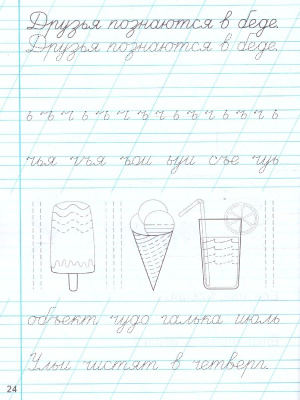 Друзья познаются в беде.
Друзья познаются в беде.
ь ъ ь ъ ь ъ ь ъ ь ъ ь ъ ь ъ
чья ъя ъои ьуи съе чь
объект чудо галька июль
Ульи чистят в четверг.
24